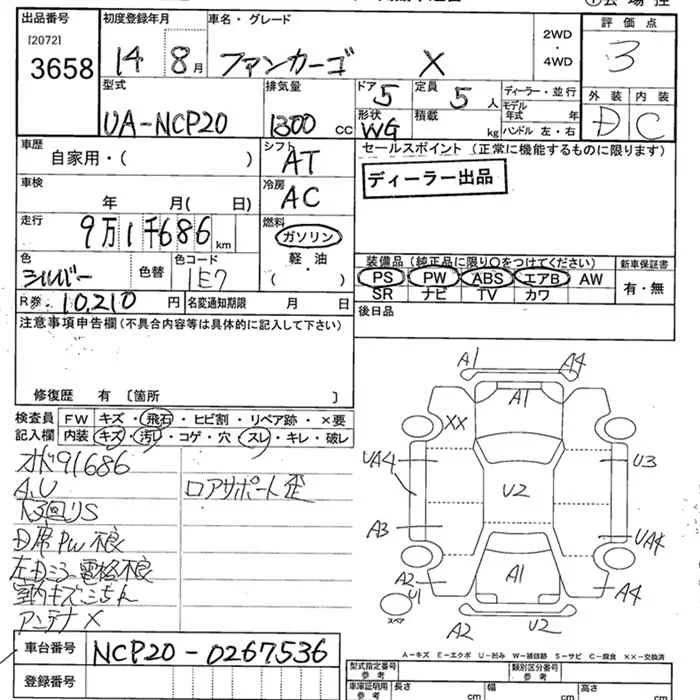 出品番号 初度登録年月 車名・グレード 2WD・4WD 評価点
[2072]
3658 14 8月 ファンカーゴ X 3
型式 排気量 ドア 5 定員 5人 ディーラー・並行 外装 内装
UA-NCP20 1300cc 形状 WG 積載 kg モデル年式 年 D C
ハンドル 左・右
車歴 自家用・( ) シフト AT セールスポイント (正常に機能するものに限ります)
車検 年 月( 日) 冷房 AC ディーラー出品
走行 9万1千686km 燃料 ガソリン
軽・油
( )
色 シルバー 色替 色コード 1E7 装備品 (純正品に限り○をつけてください) 新車保証書
PS PW ABS エアB AW 有・無
SR ナビ TV カワ
R券 10,210円 名変通知期限 月 日 後日品
注意事項申告欄(不具合内容等は具体的に記入して下さい)
修復歴 有 〔箇所 〕
検査員 FW キズ・飛石・ヒビ割・リペア跡・×要
記入欄 内装 キズ・汚れ・コゲ・穴・スレ・キレ・破レ
91686
A,U ロアサポート歪
D席PW不良
左Dミラー電格不良
アンテナX
A1 A4
A1
XX
UA4 U3
U2
A3 UA4
A2 U1 A1 A4
スペア
A2 U2
A-キズ E-エクボ U-凹み W-補修跡 S-サビ C-腐食 XX-交換済
車台番号 NCP20-0267536
登録番号
型式指定番号 参考 類別区分番号 参考
車庫証明用 参考 長さ cm 幅 cm 高さ cm